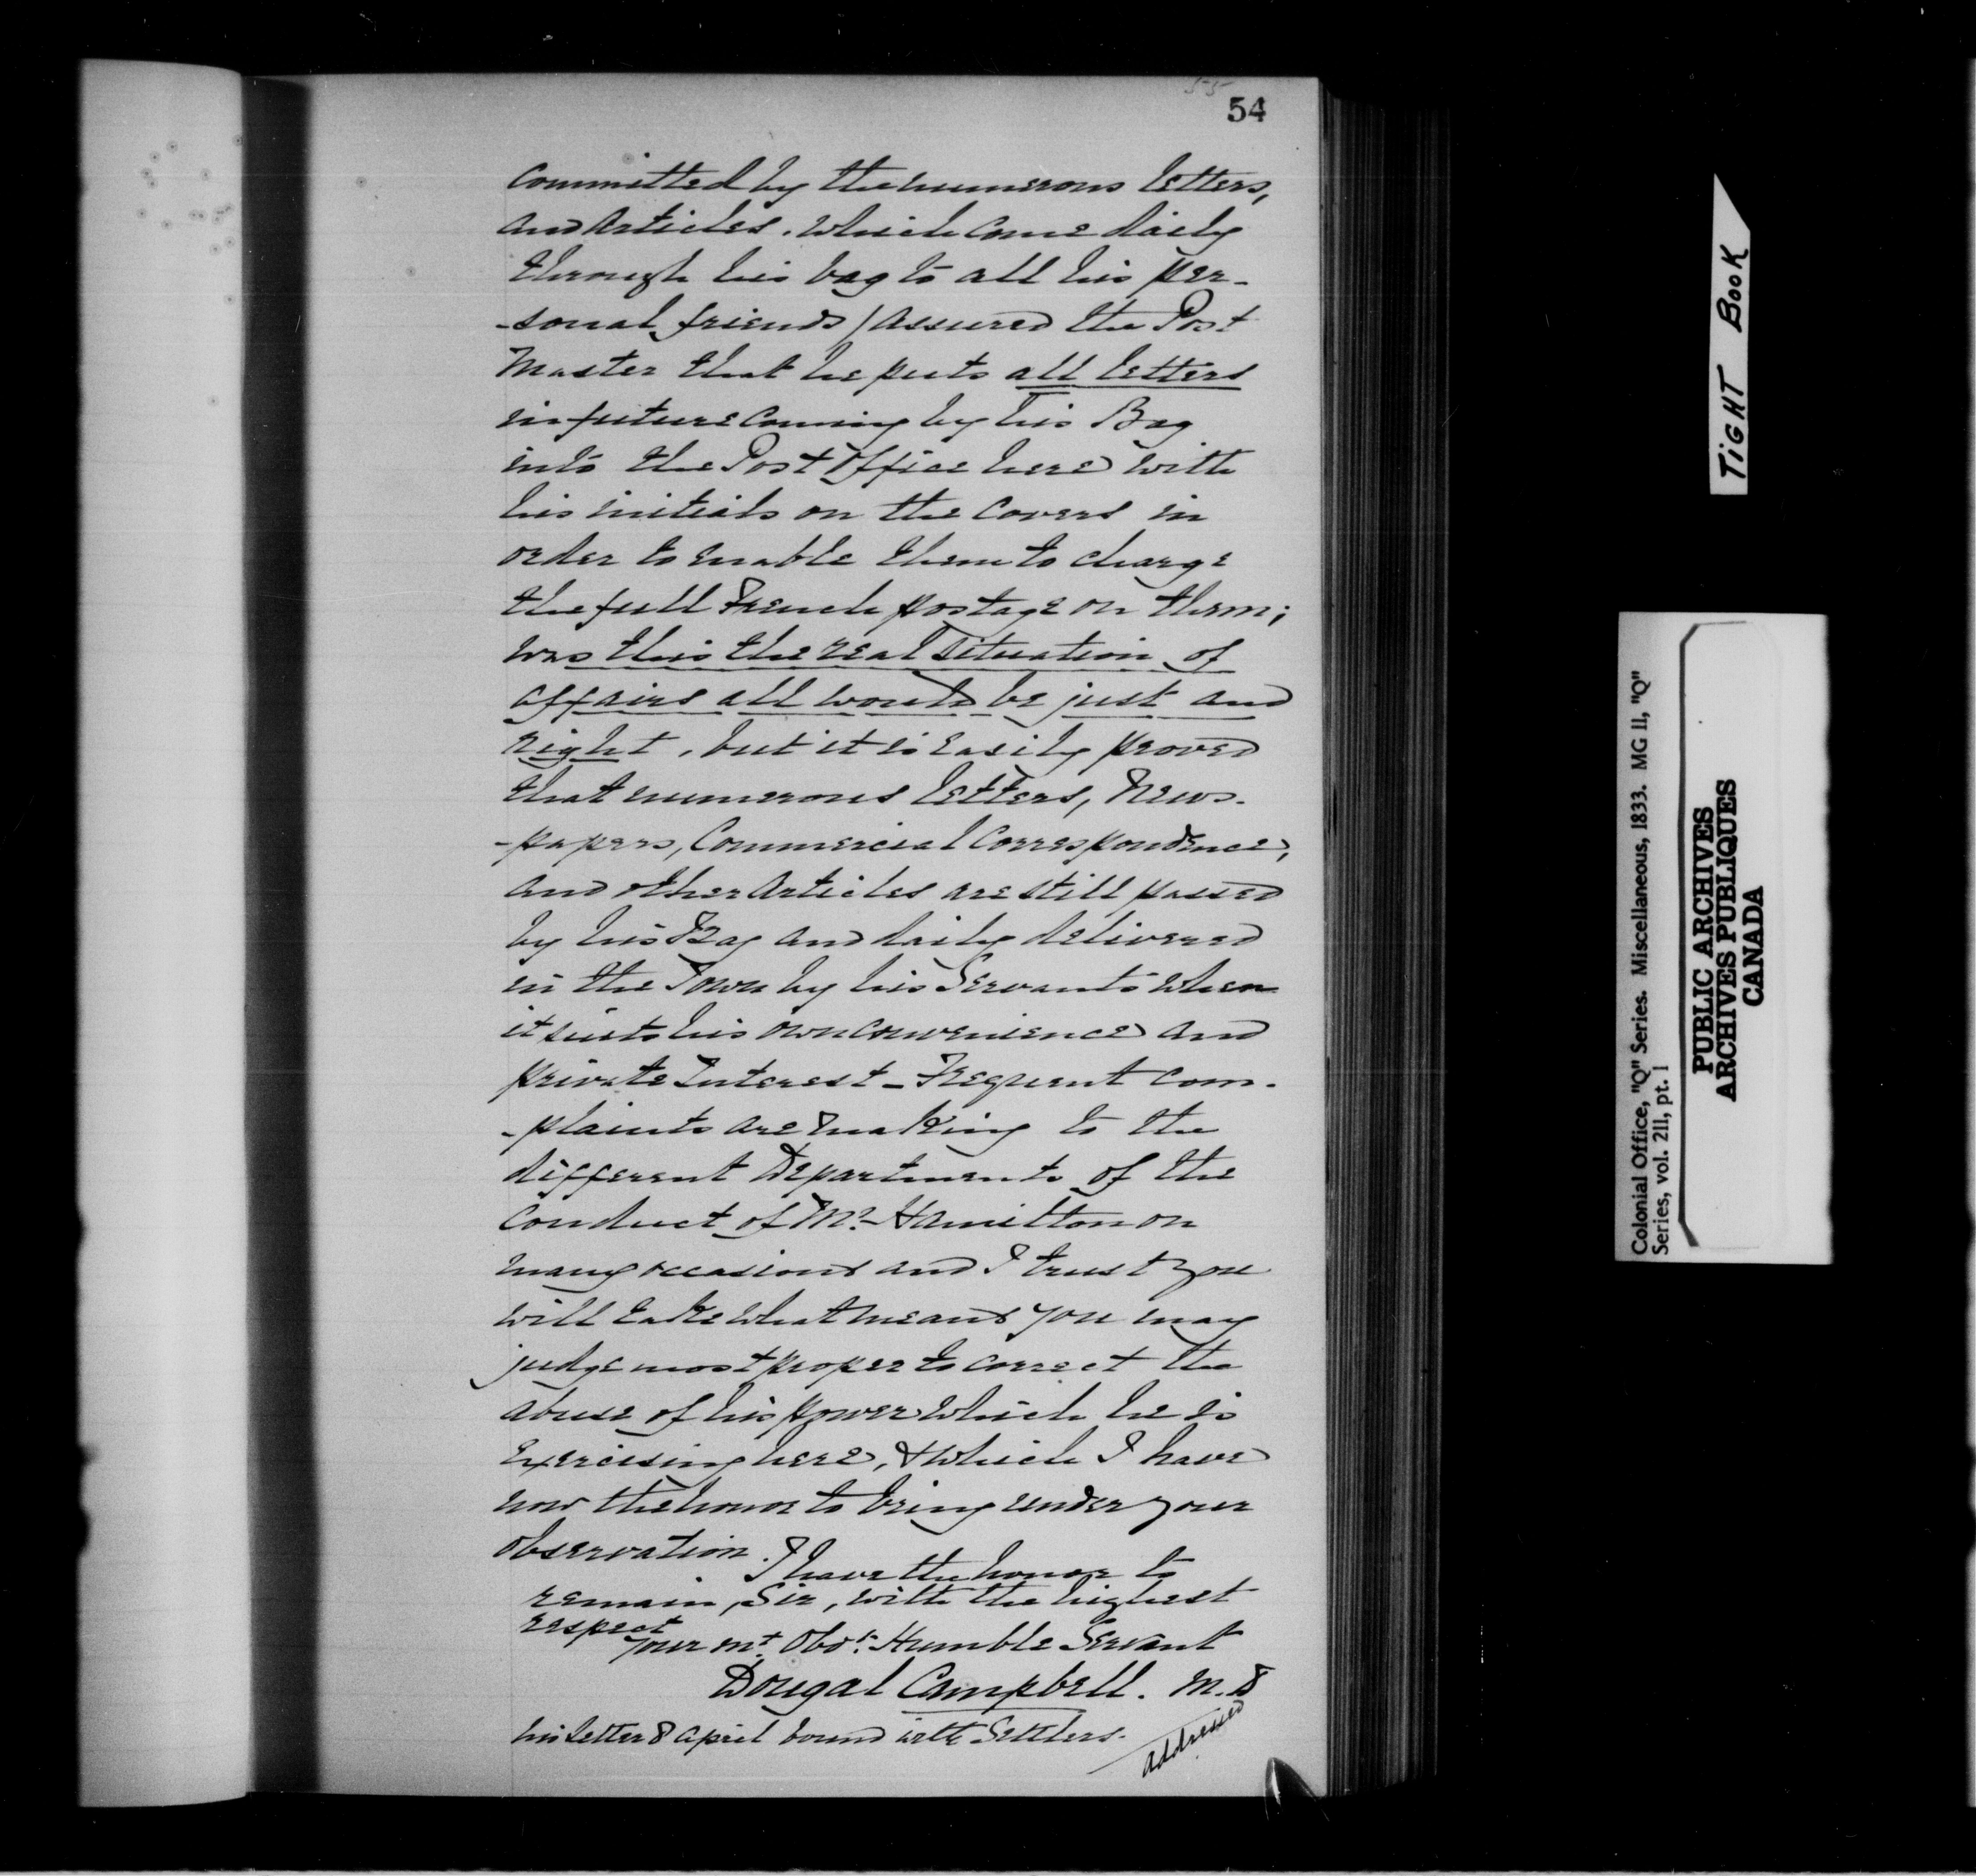 55
54
committed by the numerous letters,
and articles. which come daily
through his bag to all his per-
-sonal friends / assured the Post
Master that he puts all letters
in future coming by his Bag
into the Post Office here with
his initials on the covers in
order to enable them to charge
the full French postage on them;
was this the real situation of
affairs all would be just and
right, but it is easily proved
that numerous letters, News-
-papers, Commercial Correspondence,
and other articles are still passed
by his Bag and daily delivered
in the Town by his Servants when
it suits his own convenience and
private Interest - Frequent com-
-plaints are making to the
different Departments of the
conduct of Mr. Hamilton on
many occasions and I trust you
will take what means you may
judge most proper to correct the
abuse of his power which he is
exercising here, & which I have
now the honor to bring under your
observation.
I have the honor to
remain, Sir, with the highest
respect
your mt. Obdt. Humble Servant
Dougal Campbell. M.D
his letter 8 april bound with Settlers.
addressed
TIGHT BOOK
Colonial Office, "Q" Series. Miscellaneous, 1833. MG 11, "Q"
Series, vol. 211, pt. 1
PUBLIC ARCHIVES
ARCHIVES PUBLIQUES
CANADA